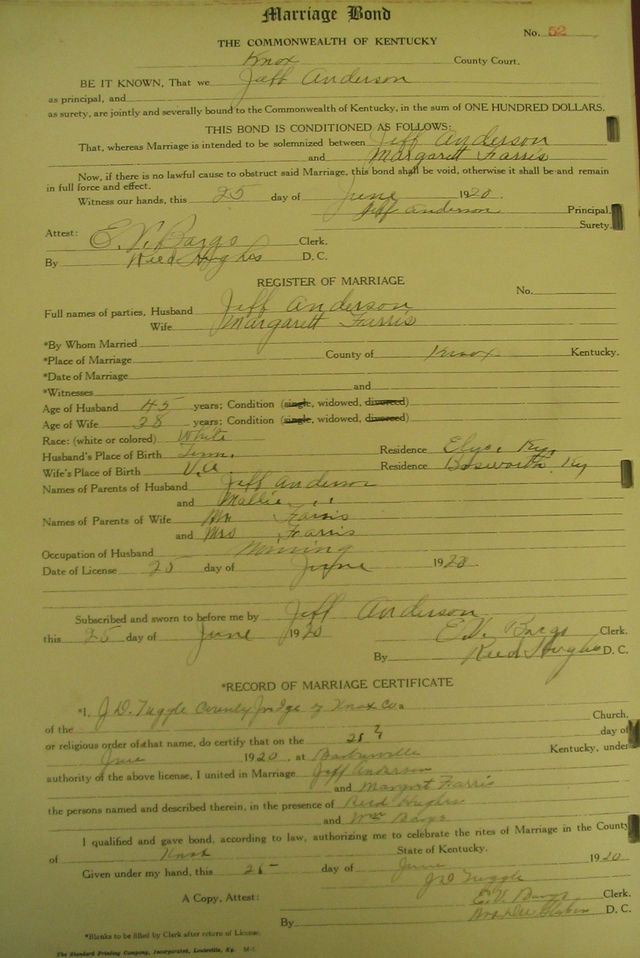 Marriage Bond
No. 52
THE COMMONWEALTH OF KENTUCKY
Knox County Court.
BE IT KNOWN, That we Jeff Anderson
as principal, and
as surety, are jointly and severally bound to the Commonwealth of Kentucky, in the sum of ONE HUNDRED DOLLARS.
THIS BOND IS CONDITIONED AS FOLLOWS:
That, whereas Marriage is intended to be solemnized between Jeff Anderson
and Margarett Farris
Now, if there is no lawful cause to obstruct said Marriage, this bond shall be void, otherwise it shall be and remain
in full force and effect.
Witness our hands, this 25 day of June 1920.
Jeff Anderson Principal.
Surety.
Attest: E. V. Bargo Clerk.
By Reed Hughes D. C.
REGISTER OF MARRIAGE
No.
Full names of parties, Husband Jeff Anderson
Wife Margarett Farris
*By Whom Married
*Place of Marriage County of Knox Kentucky.
*Date of Marriage
*Witnesses and
Age of Husband 45 years; Condition (single, widowed, divorced)
Age of Wife 28 years; Condition (single, widowed, divorced)
Race: (white or colored) White
Husband's Place of Birth Tenn. Residence Elys, Ky,
Wife's Place of Birth Va Residence Bosworth Ky
Names of Parents of Husband Jeff Anderson
and Mallie "
Names of Parents of Wife Mr Farris
and Mrs Farris
Occupation of Husband Mining
Date of License 25 day of June 1920.
Subscribed and sworn to before me by Jeff Anderson
this 25 day of June 1920
E. V. Bargo Clerk.
By Reed Hughes D. C.
*RECORD OF MARRIAGE CERTIFICATE
*I, J. D. Tuggle County Judge of Knox Co.
of the Church,
or religious order of that name, do certify that on the 25 day of
June 1920, at Barbourville Kentucky, under
authority of the above license, I united in Marriage Jeff Anderson
and Margaret Farris
the persons named and described therein, in the presence of Reed Hughes
and Wm Bargo
I qualified and gave bond, according to law, authorizing me to celebrate the rites of Marriage in the County
of Knox State of Kentucky.
Given under my hand, this 25 day of June 1920
J D Tuggle
A Copy, Attest: E. V. Bargo Clerk.
By D. C.
*Blanks to be filled by Clerk after return of License.
The Standard Printing Company, Incorporated, Louisville, Ky.